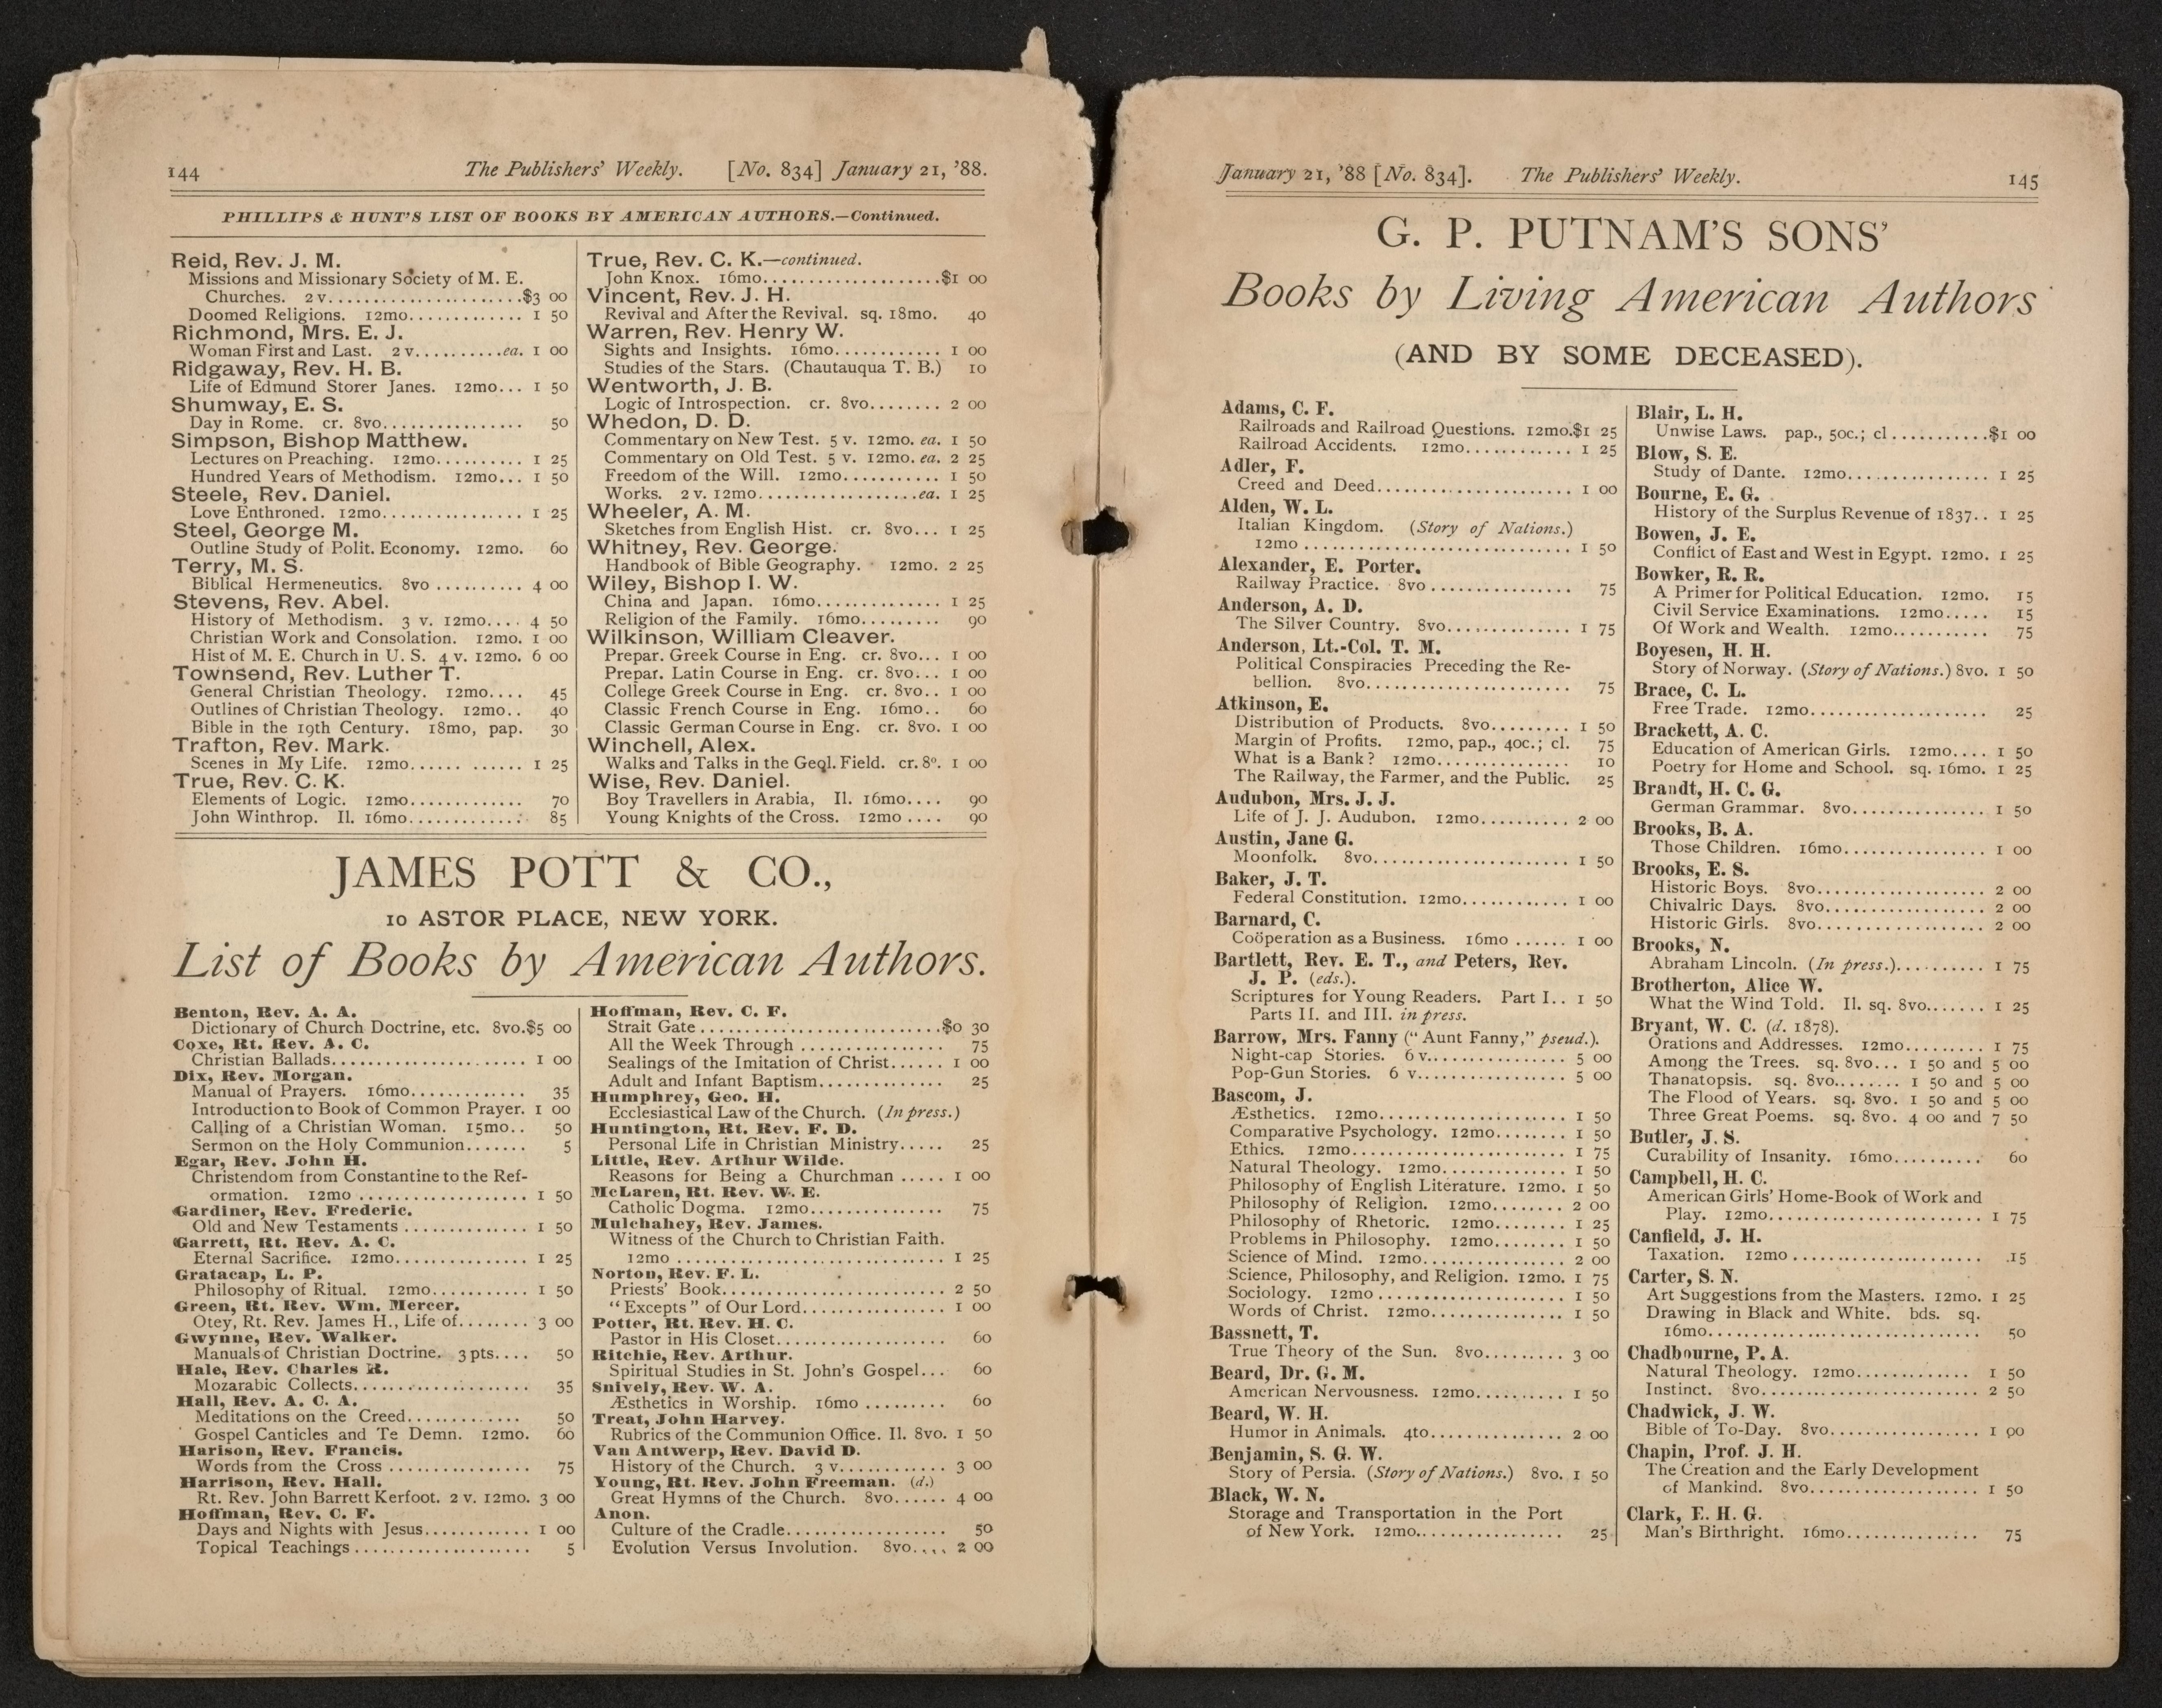 144 The Publishers' Weekly. [No. 834] January 21, '88.
PHILLIPS & HUNT'S LIST OF BOOKS BY AMERICAN AUTHORS.—Continued.
Reid, Rev. J. M.
Missions and Missionary Society of M. E.
Churches. 2 v......................$3 00
Doomed Religions. 12mo............. 1 50
Richmond, Mrs. E. J.
Woman First and Last. 2 v..........ea. 1 00
Ridgaway, Rev. H. B.
Life of Edmund Storer Janes. 12mo... 1 50
Shumway, E. S.
Day in Rome. cr. 8vo................ 50
Simpson, Bishop Matthew.
Lectures on Preaching. 12mo.......... 1 25
Hundred Years of Methodism. 12mo... 1 50
Steele, Rev. Daniel.
Love Enthroned. 12mo................ 1 25
Steel, George M.
Outline Study of Polit. Economy. 12mo. 60
Terry, M. S.
Biblical Hermeneutics. 8vo .......... 4 00
Stevens, Rev. Abel.
History of Methodism. 3 v. 12mo.... 4 50
Christian Work and Consolation. 12mo. 1 00
Hist of M. E. Church in U. S. 4 v. 12mo. 6 00
Townsend, Rev. Luther T.
General Christian Theology. 12mo.... 45
Outlines of Christian Theology. 12mo.. 40
Bible in the 19th Century. 18mo, pap. 30
Trafton, Rev. Mark.
Scenes in My Life. 12mo...... ...... 1 25
True, Rev. C. K.
Elements of Logic. 12mo............. 70
John Winthrop. Il. 16mo............. 85
True, Rev. C. K.—continued.
John Knox. 16mo....................$1 00
Vincent, Rev. J. H.
Revival and After the Revival. sq. 18mo. 40
Warren, Rev. Henry W.
Sights and Insights. 16mo............ 1 00
Studies of the Stars. (Chautauqua T. B.) 10
Wentworth, J. B.
Logic of Introspection. cr. 8vo........ 2 00
Whedon, D. D.
Commentary on New Test. 5 v. 12mo. ea. 1 50
Commentary on Old Test. 5 v. 12mo. ea. 2 25
Freedom of the Will. 12mo........... 1 50
Works. 2 v. 12mo..................ea. 1 25
Wheeler, A. M.
Sketches from English Hist. cr. 8vo... 1 25
Whitney, Rev. George.
Handbook of Bible Geography. 12mo. 2 25
Wiley, Bishop I. W.
China and Japan. 16mo.............. 1 25
Religion of the Family. 16mo......... 90
Wilkinson, William Cleaver.
Prepar. Greek Course in Eng. cr. 8vo... 1 00
Prepar. Latin Course in Eng. cr. 8vo... 1 00
College Greek Course in Eng. cr. 8vo.. 1 00
Classic French Course in Eng. 16mo.. 60
Classic German Course in Eng. cr. 8vo. 1 00
Winchell, Alex.
Walks and Talks in the Geol. Field. cr. 8º. 1 00
Wise, Rev. Daniel.
Boy Travellers in Arabia, Il. 16mo.... 90
Young Knights of the Cross. 12mo .... 90
JAMES POTT & CO.,
10 ASTOR PLACE, NEW YORK.
List of Books by American Authors.
Benton, Rev. A. A.
Dictionary of Church Doctrine, etc. 8vo.$5 00
Coxe, Rt. Rev. A. C.
Christian Ballads..................... 1 00
Dix, Rev. Morgan.
Manual of Prayers. 16mo............. 35
Introduction to Book of Common Prayer. 1 00
Calling of a Christian Woman. 15mo.. 50
Sermon on the Holy Communion....... 5
Egar, Rev. John H.
Christendom from Constantine to the Ref-
ormation. 12mo ................... 1 50
Gardiner, Rev. Frederic.
Old and New Testaments .............. 1 50
Garrett, Rt. Rev. A. C.
Eternal Sacrifice. 12mo............... 1 25
Gratacap, L. P.
Philosophy of Ritual. 12mo........... 1 50
Green, Rt. Rev. Wm. Mercer.
Otey, Rt. Rev. James H., Life of........ 3 00
Gwynne, Rev. Walker.
Manuals of Christian Doctrine. 3 pts.... 50
Hale, Rev. Charles R.
Mozarabic Collects.................... 35
Hall, Rev. A. C. A.
Meditations on the Creed............. 50
Gospel Canticles and Te Demn. 12mo. 60
Harison, Rev. Francis.
Words from the Cross ................ 75
Harrison, Rev. Hall.
Rt. Rev. John Barrett Kerfoot. 2 v. 12mo. 3 00
Hoffman, Rev. C. F.
Days and Nights with Jesus............ 1 00
Topical Teachings .................... 5
Hoffman, Rev. C. F.
Strait Gate ...........................$0 30
All the Week Through ................ 75
Sealings of the Imitation of Christ...... 1 00
Adult and Infant Baptism.............. 25
Humphrey, Geo. H.
Ecclesiastical Law of the Church. (In press.)
Huntington, Rt. Rev. F. D.
Personal Life in Christian Ministry..... 25
Little, Rev. Arthur Wilde.
Reasons for Being a Churchman ..... 1 00
McLaren, Rt. Rev. W. E.
Catholic Dogma. 12mo............... 75
Mulchahey, Rev. James.
Witness of the Church to Christian Faith.
12mo .............................. 1 25
Norton, Rev. F. L.
Priests' Book......................... 2 50
"Excepts" of Our Lord................ 1 00
Potter, Rt. Rev. H. C.
Pastor in His Closet................... 60
Ritchie, Rev. Arthur.
Spiritual Studies in St. John's Gospel... 60
Snively, Rev. W. A.
Æsthetics in Worship. 16mo ......... 60
Treat, John Harvey.
Rubrics of the Communion Office. Il. 8vo. 1 50
Van Antwerp, Rev. David D.
History of the Church. 3 v............ 3 00
Young, Rt. Rev. John Freeman. (d.)
Great Hymns of the Church. 8vo...... 4 00
Anon.
Culture of the Cradle.................. 50
Evolution Versus Involution. 8vo.... 2 00
January 21, '88 [No. 834]. The Publishers' Weekly. 145
G. P. PUTNAM'S SONS'
Books by Living American Authors
(AND BY SOME DECEASED).
Adams, C. F.
Railroads and Railroad Questions. 12mo.$1 25
Railroad Accidents. 12mo............ 1 25
Adler, F.
Creed and Deed...................... 1 00
Alden, W. L.
Italian Kingdom. (Story of Nations.)
12mo .............................. 1 50
Alexander, E. Porter.
Railway Practice. 8vo ................ 75
Anderson, A. D.
The Silver Country. 8vo.............. 1 75
Anderson, Lt.-Col. T. M.
Political Conspiracies Preceding the Re-
bellion. 8vo....................... 75
Atkinson, E.
Distribution of Products. 8vo......... 1 50
Margin of Profits. 12mo, pap., 40c.; cl. 75
What is a Bank? 12mo............... 10
The Railway, the Farmer, and the Public. 25
Audubon, Mrs. J. J.
Life of J. J. Audubon. 12mo.......... 2 00
Austin, Jane G.
Moonfolk. 8vo...................... 1 50
Baker, J. T.
Federal Constitution. 12mo............ 1 00
Barnard, C.
Coöperation as a Business. 16mo ...... 1 00
Bartlett, Rev. E. T., and Peters, Rev.
J. P. (eds.).
Scriptures for Young Readers. Part I.. 1 50
Parts II. and III. in press.
Barrow, Mrs. Fanny ("Aunt Fanny," pseud.).
Night-cap Stories. 6 v............... 5 00
Pop-Gun Stories. 6 v................. 5 00
Bascom, J.
Æsthetics. 12mo..................... 1 50
Comparative Psychology. 12mo........ 1 50
Ethics. 12mo........................ 1 75
Natural Theology. 12mo.............. 1 50
Philosophy of English Literature. 12mo. 1 50
Philosophy of Religion. 12mo......... 2 00
Philosophy of Rhetoric. 12mo........ 1 25
Problems in Philosophy. 12mo........ 1 50
Science of Mind. 12mo................ 2 00
Science, Philosophy, and Religion. 12mo. 1 75
Sociology. 12mo ..................... 1 50
Words of Christ. 12mo............... 1 50
Bassnett, T.
True Theory of the Sun. 8vo......... 3 00
Beard, Dr. G. M.
American Nervousness. 12mo.......... 1 50
Beard, W. H.
Humor in Animals. 4to............... 2 00
Benjamin, S. G. W.
Story of Persia. (Story of Nations.) 8vo. 1 50
Black, W. N.
Storage and Transportation in the Port
of New York. 12mo................. 25
Blair, L. H.
Unwise Laws. pap., 50c.; cl ...........$1 00
Blow, S. E.
Study of Dante. 12mo................ 1 25
Bourne, E. G.
History of the Surplus Revenue of 1837.. 1 25
Bowen, J. E.
Conflict of East and West in Egypt. 12mo. 1 25
Bowker, R. R.
A Primer for Political Education. 12mo. 15
Civil Service Examinations. 12mo..... 15
Of Work and Wealth. 12mo.......... 75
Boyesen, H. H.
Story of Norway. (Story of Nations.) 8vo. 1 50
Brace, C. L.
Free Trade. 12mo.................... 25
Brackett, A. C.
Education of American Girls. 12mo.... 1 50
Poetry for Home and School. sq. 16mo. 1 25
Brandt, H. C. G.
German Grammar. 8vo............... 1 50
Brooks, B. A.
Those Children. 16mo................ 1 00
Brooks, E. S.
Historic Boys. 8vo................... 2 00
Chivalric Days. 8vo.................. 2 00
Historic Girls. 8vo................... 2 00
Brooks, N.
Abraham Lincoln. (In press.).......... 1 75
Brotherton, Alice W.
What the Wind Told. Il. sq. 8vo....... 1 25
Bryant, W. C. (d. 1878).
Orations and Addresses. 12mo......... 1 75
Among the Trees. sq. 8vo... 1 50 and 5 00
Thanatopsis. sq. 8vo........ 1 50 and 5 00
The Flood of Years. sq. 8vo. 1 50 and 5 00
Three Great Poems. sq. 8vo. 4 00 and 7 50
Butler, J. S.
Curability of Insanity. 16mo.......... 60
Campbell, H. C.
American Girls' Home-Book of Work and
Play. 12mo........................ 1 75
Canfield, J. H.
Taxation. 12mo ..................... .15
Carter, S. N.
Art Suggestions from the Masters. 12mo. 1 25
Drawing in Black and White. bds. sq.
16mo............................... 50
Chadbourne, P. A.
Natural Theology. 12mo............. 1 50
Instinct. 8vo........................ 2 50
Chadwick, J. W.
Bible of To-Day. 8vo................. 1 00
Chapin, Prof. J. H.
The Creation and the Early Development
of Mankind. 8vo................... 1 50
Clark, E. H. G.
Man's Birthright. 16mo............... 75